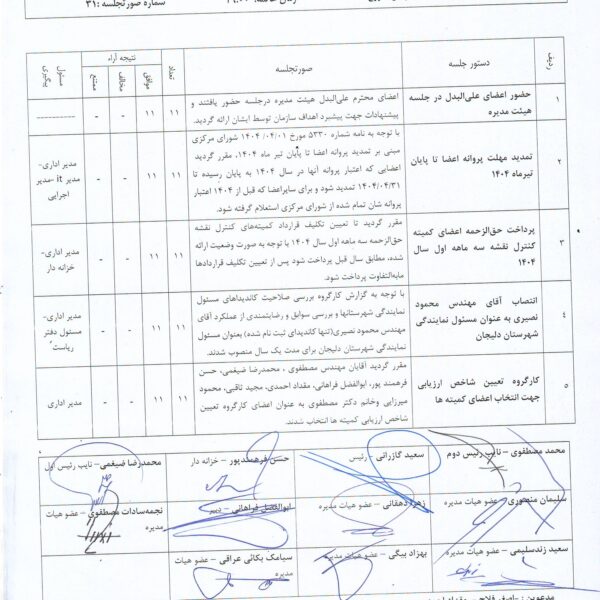 شماره صورتجلسه :۳۱
ردیف
دستور جلسه
صورتجلسه
تعداد
نتیجه آراء
موافق
مخالف
ممتنع
مسئول پیگیری
۱
حضور اعضای علی‌البدل در جلسه
هیئت مدیره
اعضای محترم علی‌البدل هیئت مدیره درجلسه حضور یافتند و
پیشنهادات جهت پیشبرد اهداف سازمان توسط ایشان ارائه گردید.
۱۱
۱۱
-
-
----------
۲
تمدید مهلت پروانه اعضا تا پایان
تیرماه ۱۴۰۴
با توجه به نامه شماره ۵۳۳۰ مورخ ۱۴۰۴/۰۴/۰۱ شورای مرکزی
مبنی بر تمدید پروانه اعضا تا پایان تیر ماه ۱۴۰۴، مقرر گردید
اعضایی که اعتبار پروانه آنها در سال ۱۴۰۴ به پایان رسیده تا
۱۴۰۴/۰۴/۳۱ تمدید شود و برای سایراعضا که قبل از ۱۴۰۴ اعتبار
پروانه شان تمام شده از شورای مرکزی استعلام گرفته شود.
۱۱
۱۱
-
-
مدیر اداری-
مدیر it -مدیر
اجرایی
۳
پرداخت حق‌الزحمه اعضای کمیته
کنترل نقشه سه ماهه اول سال
۱۴۰۴
مقرر گردید تا تعیین تکلیف قرارداد کمیته‌های کنترل نقشه
حق‌الزحمه سه ماهه اول سال ۱۴۰۴ با توجه به صورت وضعیت ارائه
شده، مطابق سال قبل پرداخت شود پس از تعیین تکلیف قراردادها
مابه‌التفاوت پرداخت شود.
۱۱
۱۱
-
-
مدیر اداری-
خزانه دار
۴
انتصاب آقای مهندس محمود
نصیری به عنوان مسئول نمایندگی
شهرستان دلیجان
با توجه به گزارش کارگروه بررسی صلاحیت کاندیداهای مسئول
نمایندگی شهرستانها و بررسی سوابق و رضایتمندی از عملکرد آقای
مهندس محمود نصیری(تنها کاندیدای ثبت نام شده) بعنوان مسئول
نمایندگی شهرستان دلیجان برای مدت یک سال منصوب شدند.
۱۱
۱۱
-
-
مدیر اداری-
مسئول دفتر
ریاست
۵
کارگروه تعیین شاخص ارزیابی
جهت انتخاب اعضای کمیته ها
مقرر گردید آقایان مهندس مصطفوی ، محمدرضا ضیغمی، حسن
فرهمند پور، ابوالفضل فراهانی، مقداد احمدی، مجید تاقبی، محمود
میرزایی وخانم دکتر مصطفوی به عنوان اعضای کارگروه تعیین
شاخص ارزیابی کمیته ها انتخاب شدند.
۱۱
۱۱
-
-
مدیر اداری
محمد مصطفوی – نایب رئیس دوم
سعید گازرانی – رئیس
حسن فرهمندپور – خزانه دار
محمدرضا ضیغمی – نایب رئیس اول
سلیمان منصوری – عضو هیات مدیره
زهرا دهقانی – عضو هیات مدیره
ابوالفضل فراهانی – دبیر
نجمه‌سادات مصطفوی – عضو هیات
مدیره
سعید زندسلیمی – عضو هیات مدیره
بهزاد بیگی – عضو هیات مدیره
سیامک بکائی عراقی – عضو هیات
مدیره